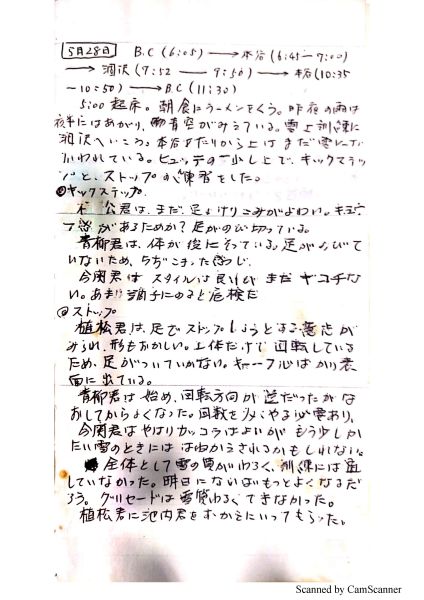 5月28日 B.C (6:05) → 本谷 (6:45 — 7:00)
→ 涸沢 (7:52 — 9:50) → 本谷 (10:35
— 10:50) → BC (11:30)
5:00 起床。朝食にラーメンをくう。昨夜の雨は
夜半にはあがり、青空がみえている。雪上訓練に
涸沢へいこう。本谷あたりから上はまだ雪に
おおわれている。ヒュッテの少し上で、キックステッ
プと、ストップの練習をした。
①キックステップ
君は、まだ、足のけりこみがよわい。
感があるためか?足がのび切っている。
青柳君は、体が後にそっている。足がのびて
いないため、ちぢこまった感じ。
今関君は スタイルは良いけど まだ ギコチな
い。あまり調子にのると危検だ
②ストップ
植松君は、足でストップしようとする意志が
みられ、形もおかしい。上体だけで回転している
ため、足がついていかない。
面に出ている。
青柳君は始め、回転方向が逆だったがな
おしてからよくなった。回数をやる必要あり。
今関君はやはりカッコウはよいが もう少しか
たい雪のときには はねかえされるかもしれない。
全体として雪の質がわるく、訓練には適
していなかった。明日にないばもっとよくなるだ
ろう。グリセードは雪質わるくできなかった。
植松君に池内君をむかえにいってもらった。
Scanned by CamScanner